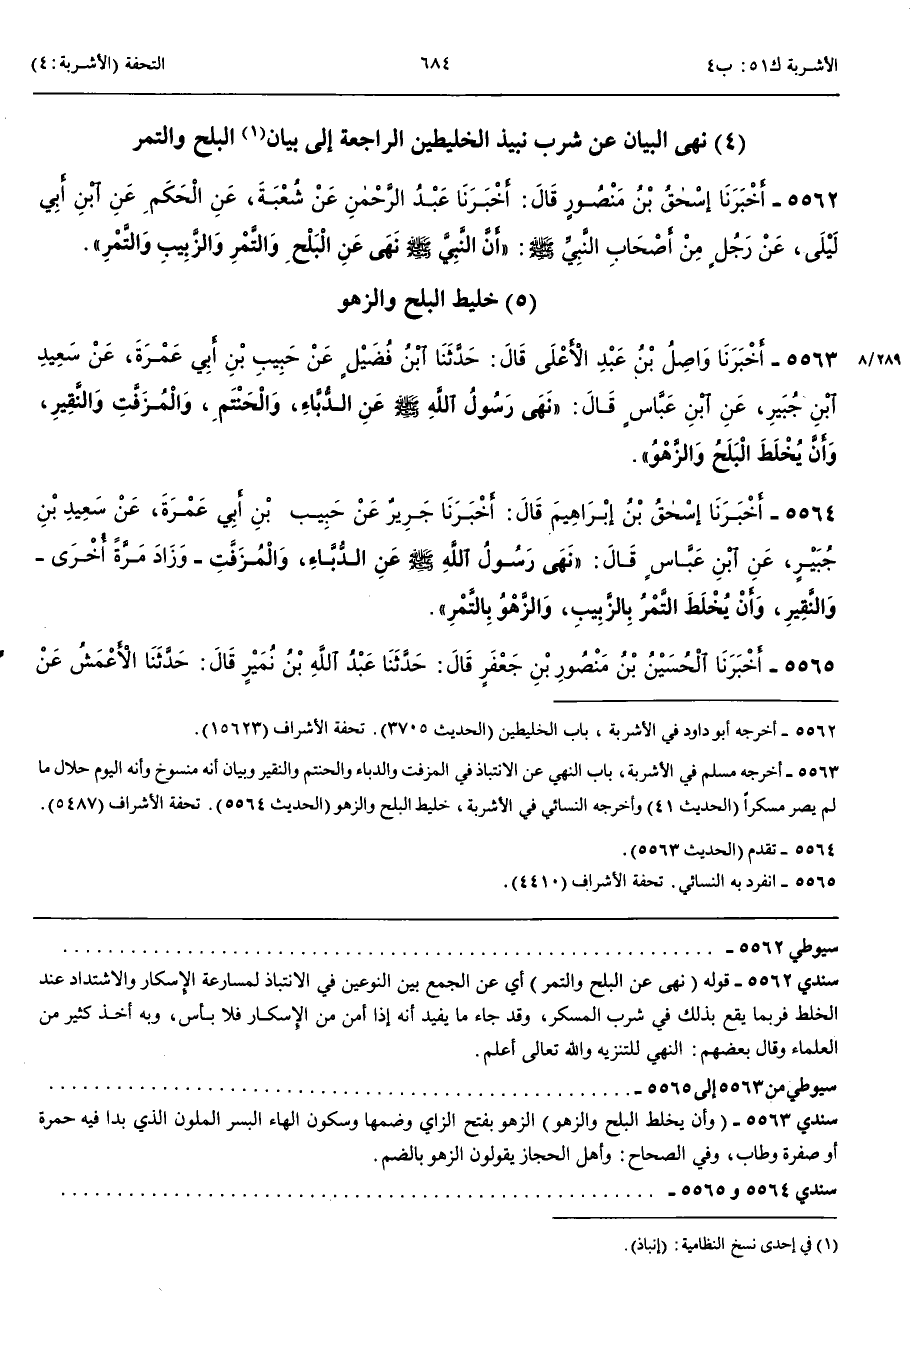 الأشربة ك٥١: ب٤ ٦٨٤ التحفة (الأشربة: ٤)
(٤) نهى البيان عن شرب نبيذ الخليطين الراجعة إلى بيان(١) البلح والتمر
٥٥٦٢ ـ أَخْبَرَنَا إِسْحٰقُ بْنُ مَنْصُورٍ قَالَ: أَخْبَرَنَا عَبْدُ الرَّحْمٰنِ عَنْ شُعْبَةَ، عَنِ الْحَكَمِ عَنِ ٱبْنِ أَبِي
لَيْلَى، عَنْ رَجُلٍ مِنْ أَصْحَابِ النَّبِيِّ ﷺ: «أَنَّ النَّبِيَّ ﷺ نَهَى عَنِ الْبَلْحِ وَالتَّمْرِ وَالزَّبِيبِ وَالتَّمْرِ».
(٥) خليط البلح والزهو
٥٥٦٣ ـ أَخْبَرَنَا وَاصِلُ بْنُ عَبْدِ الْأَعْلَى قَالَ: حَدَّثَنَا ٱبْنُ فُضَيْلٍ عَنْ حَبِيبِ بْنِ أَبِي عَمْرَةَ، عَنْ سَعِيدِ ٨/٢٨٩
ٱبْنِ جُبَيرِ، عَنِ ٱبْنِ عَبَّاسٍ قَـالَ: «نَهَى رَسُولُ اللَّهِ ﷺ عَنِ الـدُّبَّاءِ، وَالْحَنْتَمِ، وَالْمُـزَفَّتِ وَالنَّقِيرِ،
وَأَنَّ يُخْلَطَ الْبَلَحُ وَالزَّهْوُ».
٥٥٦٤ ـ أَخْبَرَنَا إِسْحٰقُ بْنُ إِبْـرَاهِيمَ قَالَ: أَخْبَرَنَا جَرِيرٌ عَنْ حَبِيبِ بْنِ أَبِي عَمْرَةَ، عَنْ سَعِيدِ بْنِ
جُبَيْـرٍ، عَنِ ٱبْنِ عَبَّاسٍ قَـالَ: «نَهَى رَسُـولُ اللَّهِ ﷺ عَنِ الـدُّبَّاءِ، وَالْمُـزَفَّتِ ـ وَزَادَ مَـرَّةً أُخْـرَى ـ
وَالنَّقِيرِ، وَأَنْ يُخْلَطَ التَّمْرُ بِالزَّبِيبِ، وَالزَّهْوُ بِالتَّمْرِ».
٥٥٦٥ ـ أَخْبَرَنَا ٱلْحُسَيْنُ بْنُ مَنْصُورِ بْنِ جَعْفَرٍ قَالَ: حَدَّثَنَا عَبْدُ اللَّهِ بْنُ نُمَيْرٍ قَالَ: حَدَّثَنَا الْأَعْمَشُ عَنْ
٥٥٦٢ ـ أخرجه أبو داود في الأشربة، باب الخليطين (الحديث ٣٧٠٥). تحفة الأشراف (١٥٦٢٣).
٥٥٦٣ ـ أخرجه مسلم في الأشربة، باب النهي عن الانتباذ في المزفت والدباء والحنتم والنقير وبيان أنه منسوخ وأنه اليوم حلال ما
لم يصر مسكراً (الحديث ٤١) وأخرجه النسائي في الأشربة، خليط البلح والزهو (الحديث ٥٥٦٤). تحفة الأشراف (٥٤٨٧).
٥٥٦٤ ـ تقدم (الحديث ٥٥٦٣).
٥٥٦٥ ـ انفرد به النسائي. تحفة الأشراف (٤٤١٠).
سيوطي ٥٥٦٢ ـ ................................................
سندي ٥٥٦٢ ـ قوله ( نهى عن البلح والتمر ) أي عن الجمع بين النوعين في الانتباذ لمسارعة الإسكار والاشتداد عند
الخلط فربما يقع بذلك في شرب المسكر، وقد جاء ما يفيد أنه إذا أمن من الإسكـار فلا بـأس، وبه أخـذ كثير من
العلماء وقال بعضهم: النهي للتنزيه والله تعالى أعلم.
سيوطي من ٥٥٦٣ إلى ٥٥٦٥ ـ ................................................
سندي ٥٥٦٣ ـ ( وأن يخلط البلح والزهو ) الزهو بفتح الزاي وضمها وسكون الهاء البسر الملون الذي بدا فيه حمرة
أو صفرة وطاب، وفي الصحاح: وأهل الحجاز يقولون الزهو بالضم.
سندي ٥٥٦٤ و ٥٥٦٥ ـ ................................................
(١) في إحدى نسخ النظامية: (إنباذ).